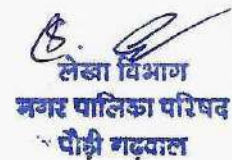 लेखा विभाग
नगर पालिका परिषद
पौड़ी गढ़वाल